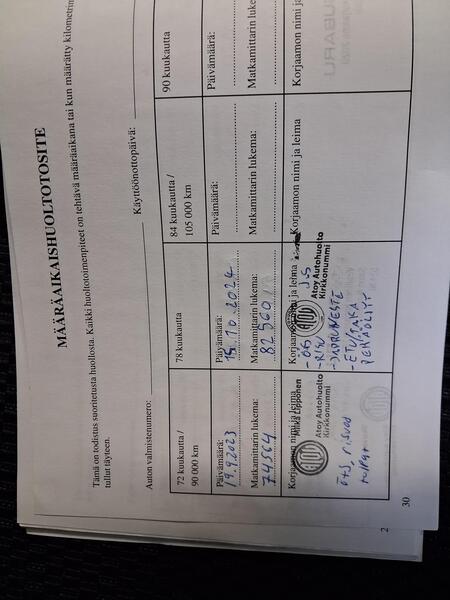 MÄÄRÄAIKAISHUOLTOTOSITE
Tämä on todistus suoritetusta huollosta. Kaikki huoltotoimenpiteet on tehtävä määräaikana tai kun määrätty kilometrim
tullut täyteen.
Auton valmistenumero: Käyttöönottopäivä:
72 kuukautta /
90 000 km
Päivämäärä:
19.9.2023
Matkamittarin lukema:
74564
Korjaamon nimi ja leima
Miika Lipponen
Atoy Autohuolto
Kirkkonummi
78 kuukautta
Päivämäärä:
15.10.2024
Matkamittarin lukema:
82560
Korjaamon nimi ja leima
Atoy Autohuolto
Kirkkonummi
- JARRUNESTE
- ETU/TAKA
84 kuukautta /
105 000 km
Päivämäärä:
Matkamittarin lukema:
Korjaamon nimi ja leima
90 kuukautta
Päivämäärä:
Matkamittarin luke
Korjaamon nimi j
SUBARU
2
30